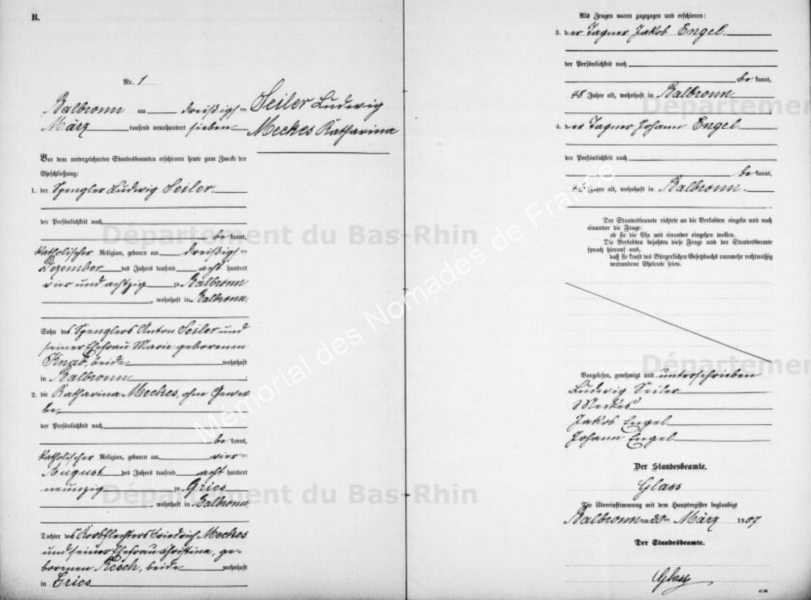 B.
Nr. 1
Balbronn am dreißigsten
März tausend neunhundert sieben
Seiler Ludwig
Meckes Katharina
Vor dem unterzeichneten Standesbeamten erschienen heute zum Zwecke der
Eheschließung:
1. der Spengler Ludwig Seiler
der Persönlichkeit nach
be kannt,
katholischer Religion, geboren am dreißigsten
Dezember des Jahres tausend acht hundert
vier und achtzig in Balbronn
, wohnhaft in Balbronn
Sohn des Spenglers Anton Seiler und
seiner Ehefrau Marie geborenen
beide wohnhaft
in Balbronn
2. die Katharina Meckes, ohne Gewer
be
der Persönlichkeit nach
be kannt,
katholischer Religion, geboren am vier
August des Jahres tausend acht hundert
neunzig in Gries
, wohnhaft in Balbronn
Tochter des Korbflechters Friedrich Meckes
und seiner Ehefrau Christina, ge-
borenen Resch, beide wohnhaft
in Gries
Als Zeugen waren zugezogen und erschienen:
3. der Tagner Jakob Engel
der Persönlichkeit nach
be kannt,
48 Jahre alt, wohnhaft in Balbronn
4. der Tagner Johann Engel
der Persönlichkeit nach
be kannt,
Jahre alt, wohnhaft in Balbronn
Der Standesbeamte richtete an die Verlobten einzeln und nach
einander die Frage:
ob sie die Ehe mit einander eingehen wollen.
Die Verlobten bejahten diese Frage und der Standesbeamte
sprach hierauf aus,
daß sie kraft des Bürgerlichen Gesetzbuchs nunmehr rechtmäßig
verbundene Eheleute seien.
Vorgelesen, genehmigt und unterschrieben
Ludwig Seiler
Meckes
Jakob Engel
Johann Engel
Der Standesbeamte.
Glass
Die Übereinstimmung mit dem Hauptregister beglaubigt
Balbronn am 30ten März 1907
Der Standesbeamte.
Glass
Département du Bas-Rhin
Département du Bas-Rhin
Départemen
Départemen
Mémorial des Nomades de France